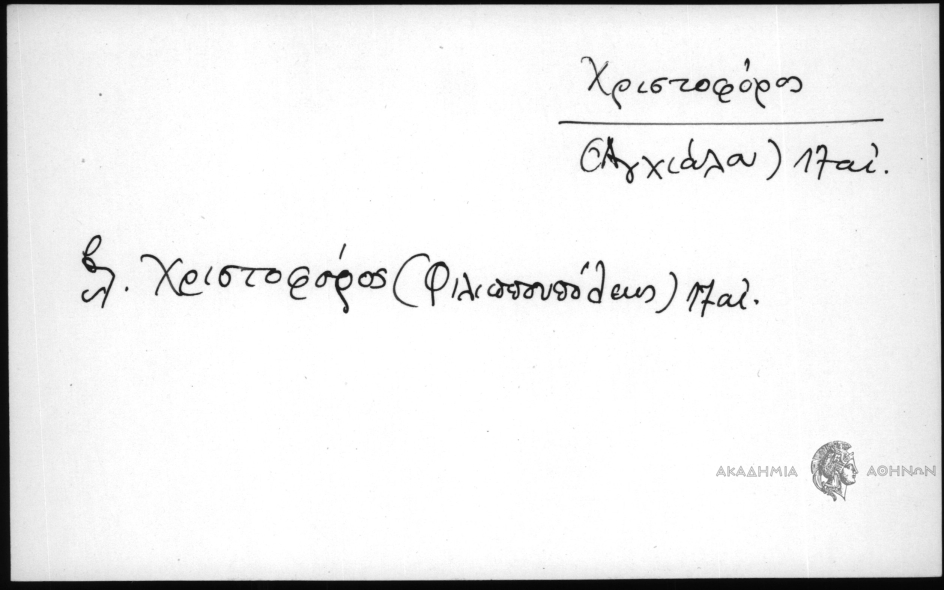 Χριστοφόρος
(Ἀγχιάλου) 17 αἰ.
βλ. Χριστοφόρος (Φιλιππουπόλεως) 17 αἰ.
ΑΚΑΔΗΜΙΑ ΑΘΗΝΩΝ